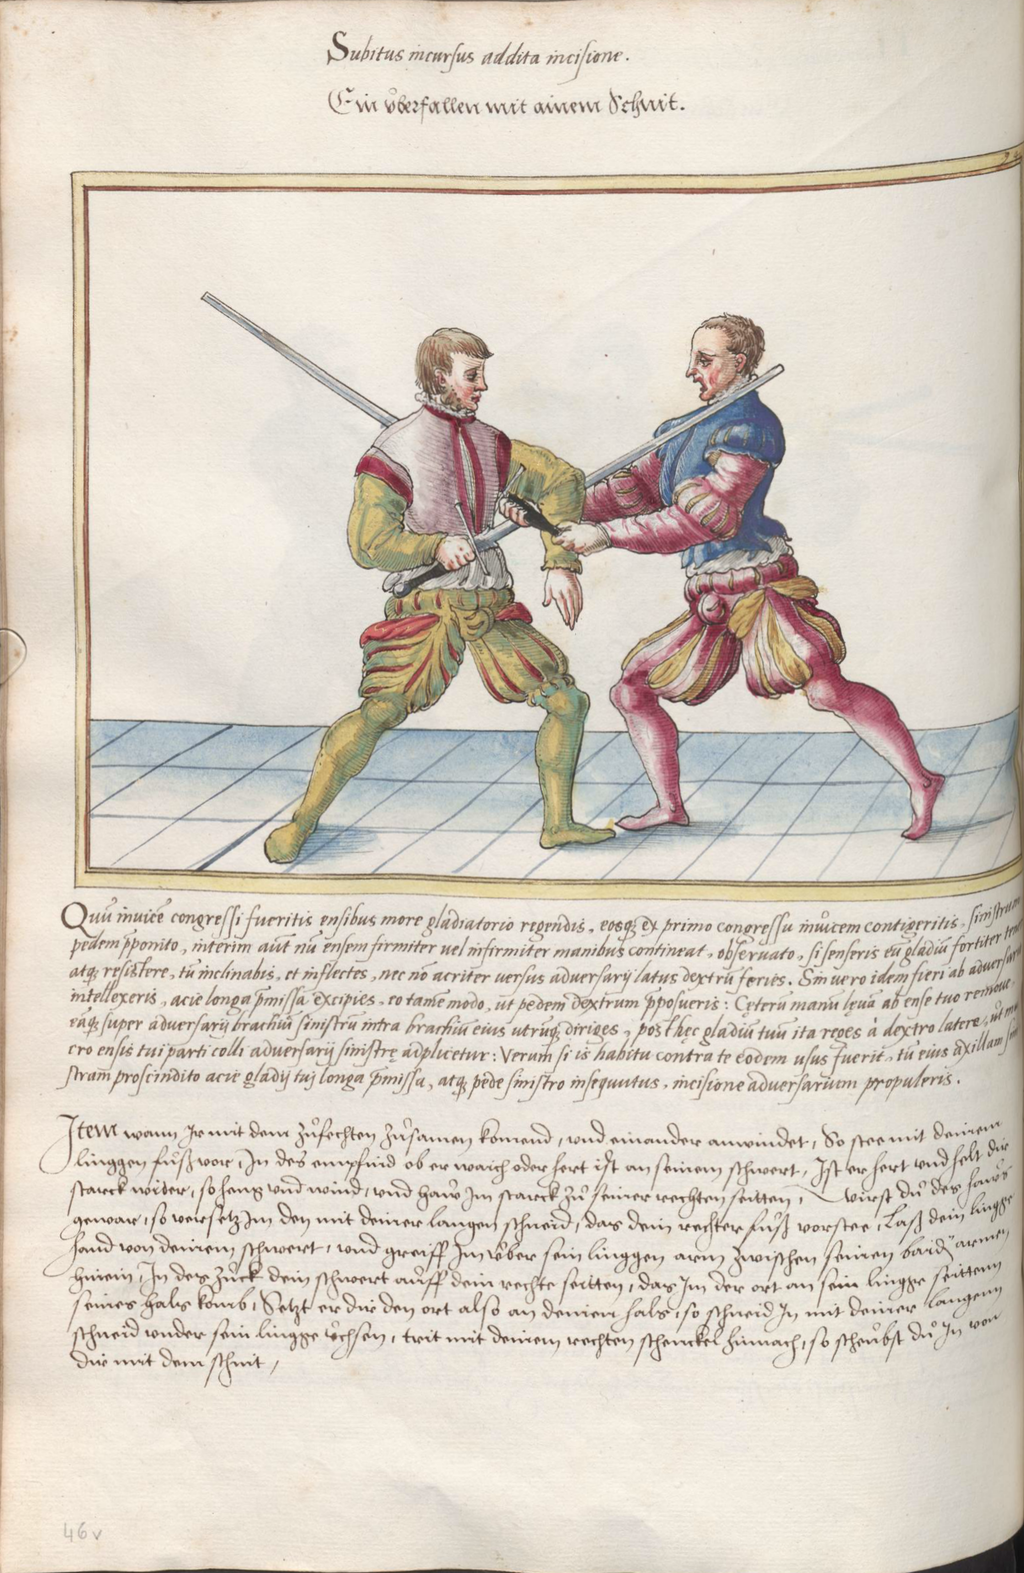 Subitus incursus addita incisione.
Ein v̊berfallen mit ainem Schnit.
Quū invicē congressi fueritis ensibus more gladiatorio regendis, eosq; ex primo congressu invicem contigeritis, sinistrum
pedem p̄ponito, interim aūt nū ensem firmiter vel infirmiter manibus contineat, observato, si senseris eū gladiū fortiter
atq; resistere, tū inclinabis, et inflectes, nec nō acriter versus adversarij latus dextrū feries. Sin vero idem fieri ab adversario
intellexeris, acie longa p̄missa excipies, eo tamē modo, ut pedem dextrum p̄posueris: Cęterū manū lęvā ab ense tuo remove,
eāq; super adversarij brachiū sinistrū intra brachiū eius utrūq; diriges, post hęc gladiū tuū ita reges à dextro latere, ut mu
cro ensis tui parti colli adversarij sinistrę adplicetur: Verum si is habitu contra te eodem usus fuerit, tū eius axillam sini
stram proscindito acie gladij tuj longa p̄missa, atq; pede sinistro insequutus, incisione adversarium propuleris.
Item wann Ir mit dem zůfechten zůsamen komend, und einander anwindet, So stee mit deinem
linggen fůß vor, In des empfind ob er waich oder hert ist an seinem schwert, Ist er hert und helt dir
starck wider, so heng und wind, und haw Im starck zů seiner rechten seitten, Wirst du des haws
gewar, so versetz Im den mit deiner langen schneid, das dein rechter fůß vorstee, Laß dein lingge
hand von deinem schwert, und greiff Im v̊ber sein linggen arm zwischen seinen baid armen
hinein, In des zuck dein schwert auff dein rechte seitten, das Im der ort an sein lingge seittenn
seines hals komb, Setzt er dir den ort also an deinen hals, so schneid In mit deiner langenn
schneid under sein lingge v̊chsen, trit mit deinem rechten schenckel hinnach, so scheubst du In von
dir mit dem schnit,
46v